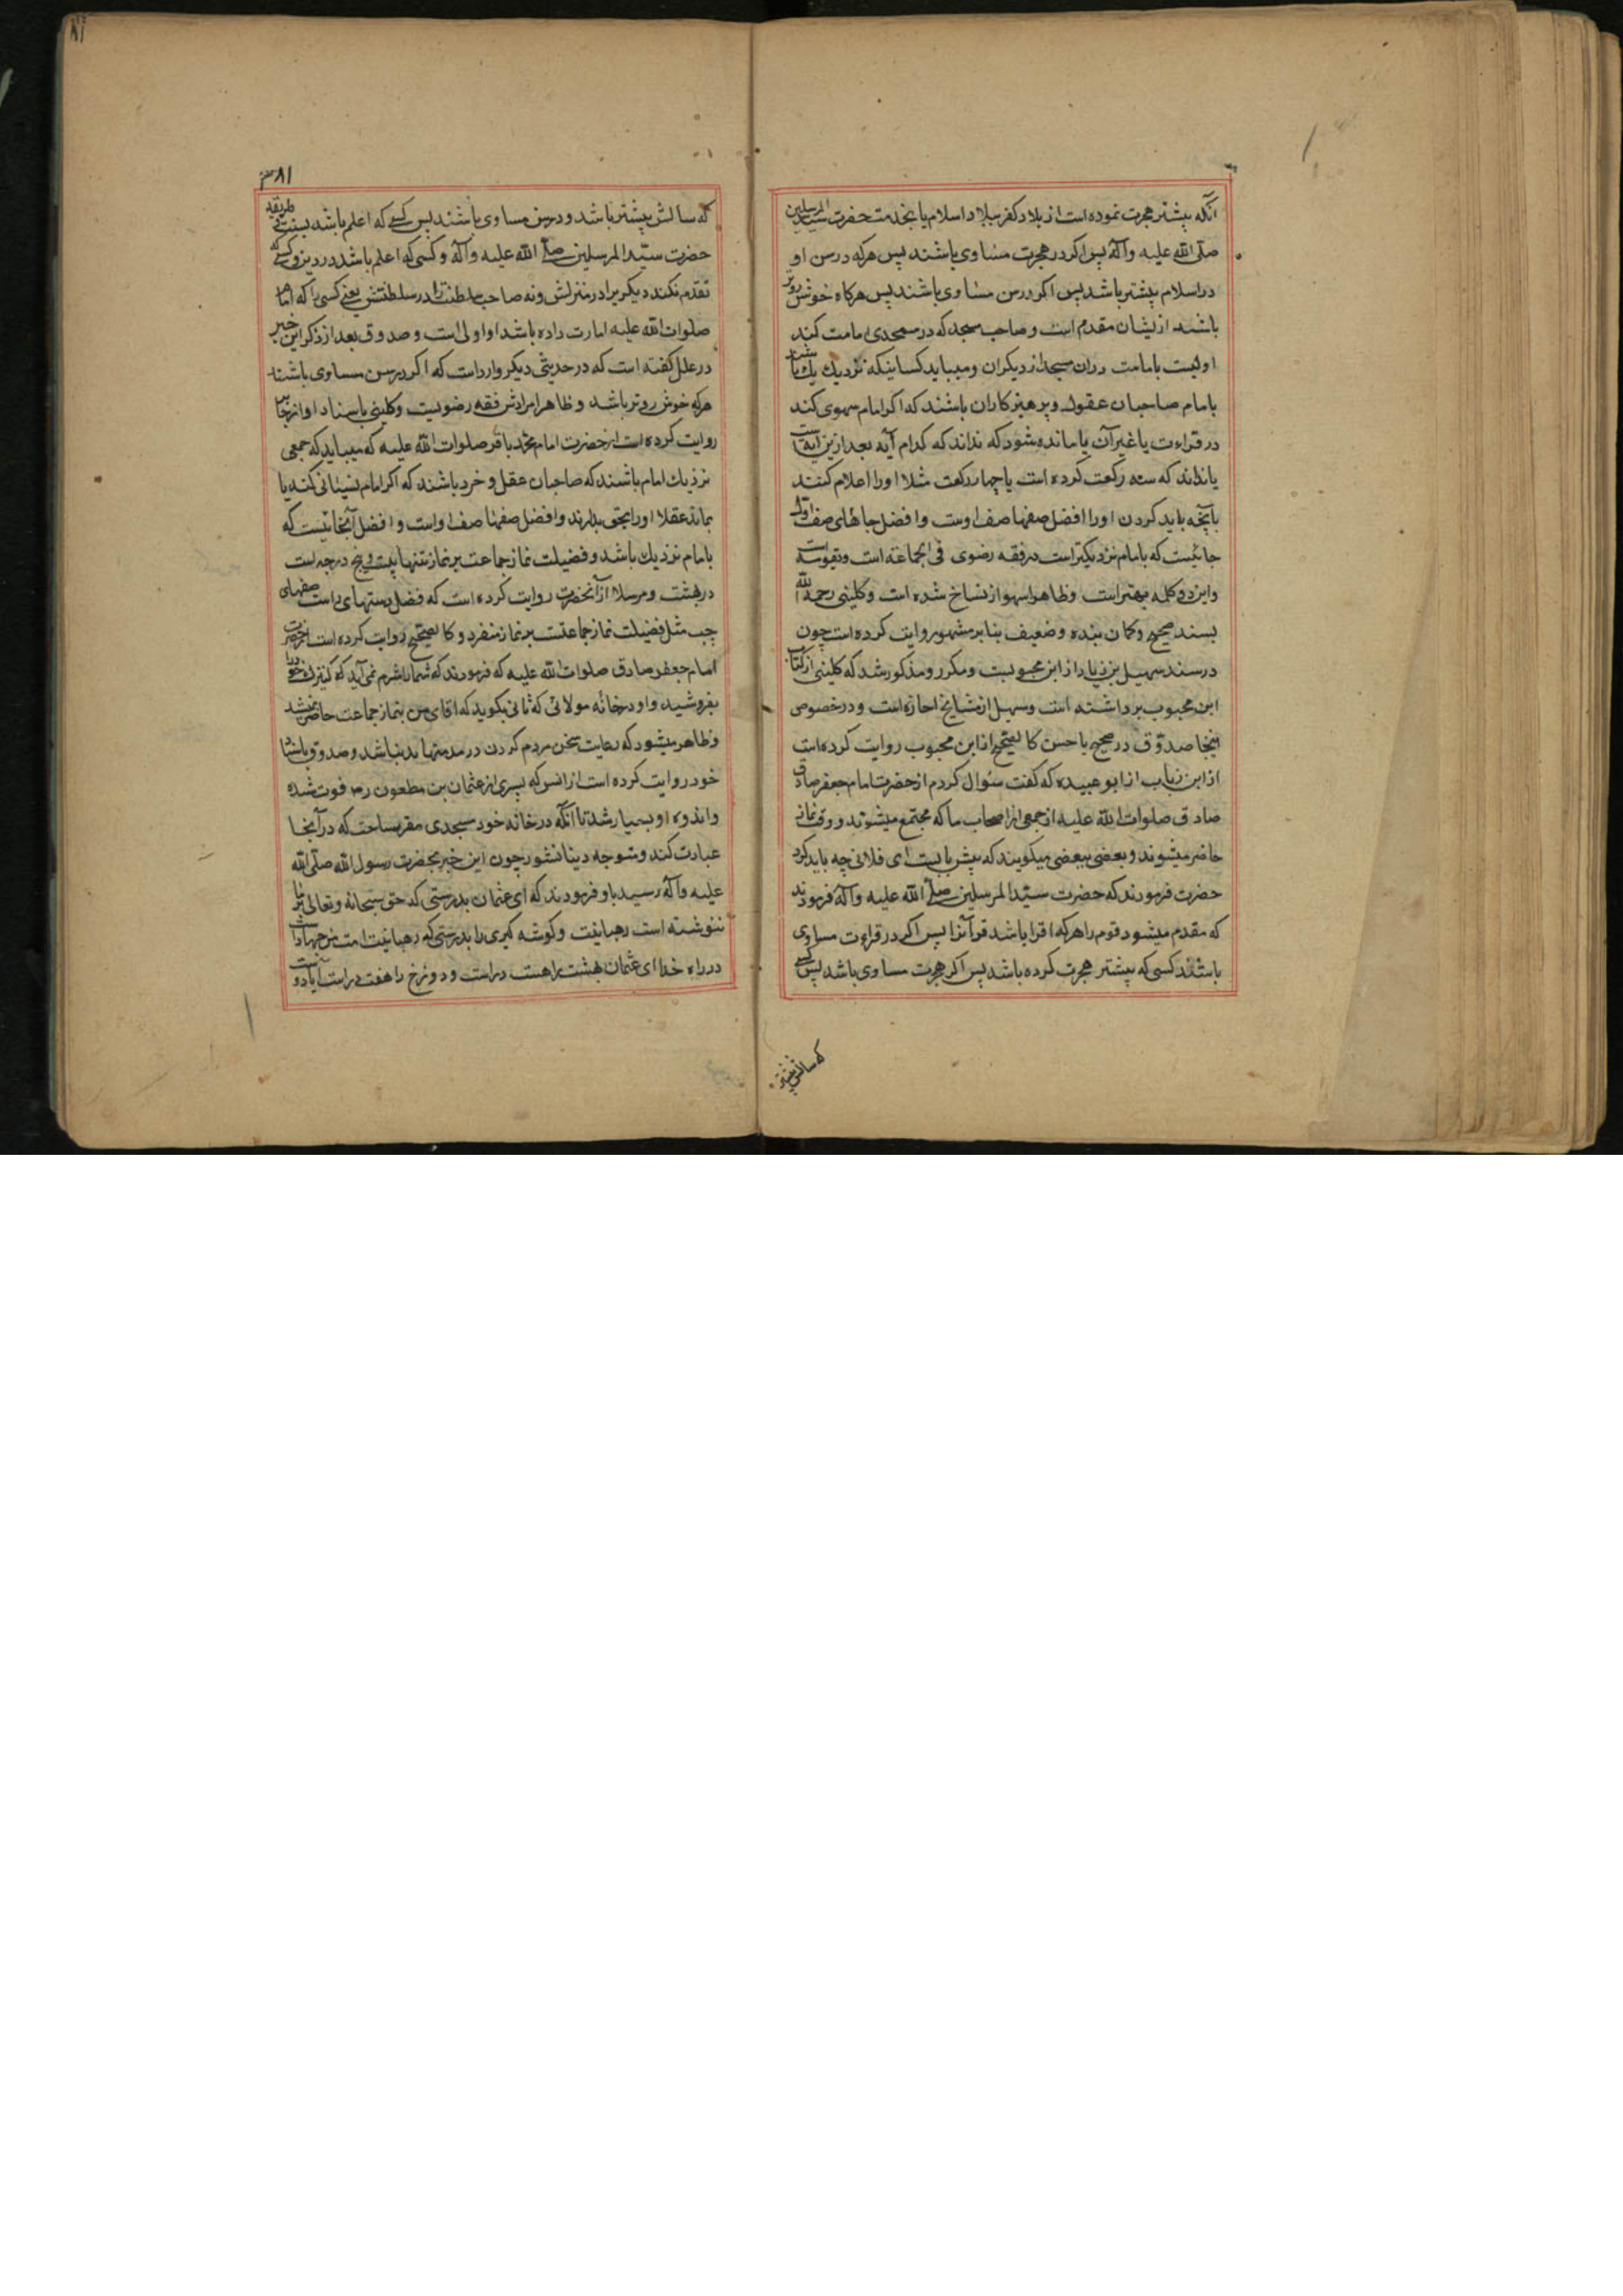 آنکه پیشتر هجرت نموده است از بلاد کفر ببلاد اسلام یا بخدمت حضرت سید المرسلین
صلی الله علیه وآله پس اکر در هجرت مساوی باشند پس هرکه در سن او
در اسلام پیشتر باشد پس اکر در سن مساوی باشند پس هرکاه خوش روتر
باشد از یشان مقدم است و صاحب مسجد که در مسجدی امامت کند
اولیست بامامت در ان مسجد از دیکران و میباید کسانیکه نزدیك باشند
بامام صاحبان عقول و پرهیز کاران باشند که اکر امام سهوی کند
در قراءت یا غیر آن یا مانده شود که نداند که کدام آیه بعد ازین ایه است
یا نداند که سه رکعت کرده است یا چهار رکعت مثلا اورا اعلام کنند
بانچه باید کردن اورا افضل صفها صف اوست و افضل جاهای صف اول
جائیست که بامام نزدیکتر است در فقه رضوی فی الجماعه است
واین دو کلمه بهتر است وظاهرا سهو از نساخ شده است وکلینی رحمه الله
بسند صحیح وکمان بنده وضعیف بنابر مشهور روایت کرده است چون
در سند سهیل بن زیاد از ابن محبوبست ومکرر ومذکور شد که کلینی از کتاب
ابن محبوب برداشته است وسهیل از مشایخ اجازه است ودر خصوص
اینجا صدوق در صحیح یا حسن کالصحیح از ابن محبوب روایت کرده است
از ابن زیاب از ابو عبیده که کفت سئوال کردم از حضرت امام جعفر صادق
صادق صلوات الله علیه از جمعی از اصحاب ما که مجتمع میشوند و وقت نماز
حاضر میشوند و بعضی ببعضی میکویند که پیش بایست ای فلانی چه باید کرد
حضرت فرمودند که حضرت سید المرسلین صلی الله علیه وآله فرمودند
که مقدم میشود قوم را هرکه اقرا باشد قرآنرا پس اکر در قراءت مساوی
باشند کسی که پیشتر هجرت کرده باشد پس اکر هجرت مساوی باشد پس کسی
که سالش پیشتر
۸۱
که سالش پیشتر باشد ودر سن مساوی باشند پس کسی که اعلم باشد بسنت طریقه
حضرت سید المرسلین صلی الله علیه وآله وکسی که اعلم باشد در دین وکسی
تقدم نکند دیکری را در منزلش ونه صاحب سلطنت را در سلطنتش یعنی کسی را که امام
صلوات الله علیه امارت داده باشد او اولی است و صدوق بعد از ذکر این خبر
در علل کفته است که در حدیثی دیکر وارد است که اکر در سن مساوی باشند
هرکه خوش روتر باشد وظاهرا مرادش فقه رضویست وکلینی باسناد او از جابر
روایت کرده است از حضرت امام محمد باقر صلوات الله علیه که میباید که جمعی
نزدیك امام باشند که صاحبان عقل وخرد باشند که اکر امام نسیانی کند یا
بماند عقلا اورا بحق بدارند وافضل صفها صف اواست وافضل آنجائیست که
بامام نزدیك باشد وفضیلت نماز جماعت بر نماز تنها بیست وپنج درجه است
در بهشت ومرسلا از آنحضرت روایت کرده است که فضل دستهای راست صفهای
چپ مثل فضیلت نماز جماعتست بر نماز منفرد وکالصحیح روایت کرده است از حضرت
امام جعفر صادق صلوات الله علیه که فرمودند که شمارا شرم نمی آید که کنیزك خودرا
بفروشید واو در خانه مولائی که ثانی بکوید که اقای من بنماز جماعت حاضر نمیشد
وظاهر میشود که رعایت سخن مردم کردن در مذمتها بد نباشد وصدوق باسناد
خود روایت کرده است از انس که پسری از عثمان بن مظعون رضه فوت شده
واندوه او بسیار شد تا آنکه در خانه خود مسجدی مقرر ساخت که در آنجا
عبادت کند ومتوجه دنیا نشود چون این خبر بحضرت رسول الله صلی الله
علیه وآله رسید باو فرمودند که ای عثمان بدرستی که حق سبحانه وتعالی بر ما
ننوشته است رهبانیت وکوشه کیری را بدرستی که رهبانیت امت من جهاد است
در راه خدا ای عثمان بهشت را هشت در است ودوزخ را هفت در است آیا